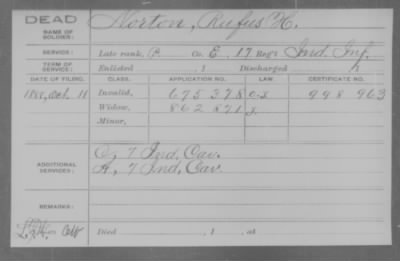 DEAD
NAME OF SOLDIER: Norton, Rufus H.
SERVICE: Late rank, P. Co. E, 17 Reg't Ind. Inf.
TERM OF SERVICE: Enlisted , 1 Discharged , 1
DATE OF FILING. CLASS. APPLICATION NO. LAW. CERTIFICATE NO.
Oct. 11 Invalid, 675 378 998 963
Widow, 862 871
Minor,
ADDITIONAL SERVICES: C, 7 Ind. Cav.
A, 7 Ind. Cav.
REMARKS:
Died , 1 , at